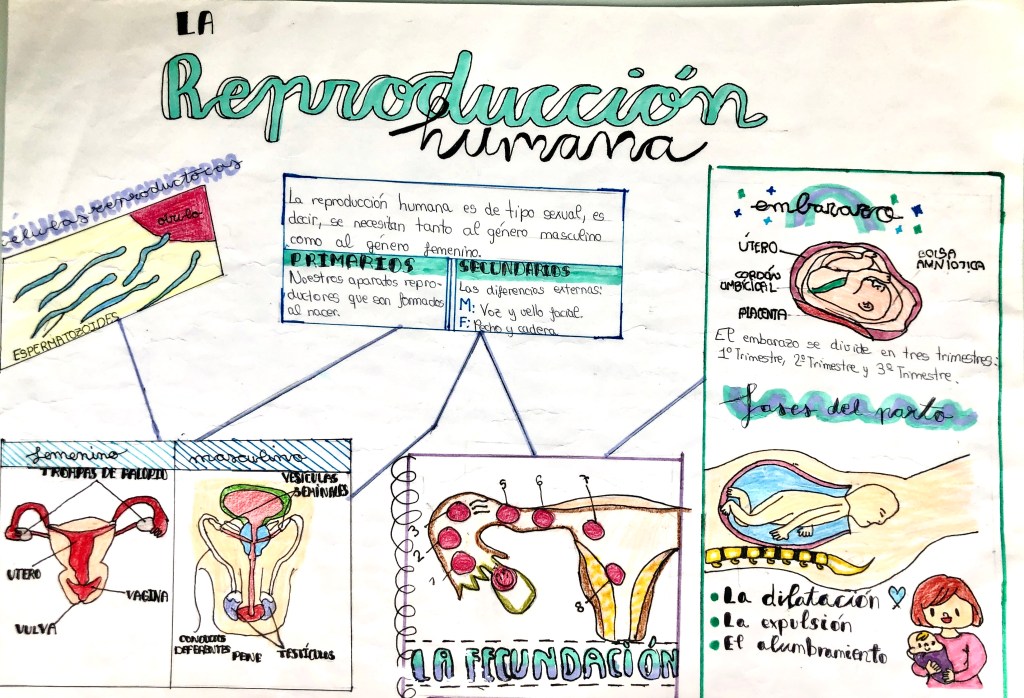 LA
Reproducción
humana
células reproductocas
óvulo
ESPERMATOZOIDES
La reproducción humana es de tipo sexual, es
decir, se necesitan tanto al género masculino
como al género femenino.
PRIMARIOS
Nuestros aparatos repro-
ductores que son formados
al nacer.
SECUNDARIOS
Las diferencias externas:
M: Voz y vello facial.
F: Pecho y cadera
embarazo
ÚTERO
CORDÓN
UMBICICAL
PLACENTA
BOLSA
AMNIOTICA
El embarazo se divide en tres trimestres:
1º Trimestre, 2º Trimestre y 3º Trimestre.
fases del parto
• La dilatación
• La expulsión
• El alumbramiento
femenino
TROMPAS DE FALOPIO
UTERO
VAGINA
VULVA
masculino
VESÍCULAS
SEMINALES
CONDUCTOS
DEFERENTES
PENE
TESTÍCULOS
1
2
3
4
5
6
7
8
LA FECUNDACIÓN